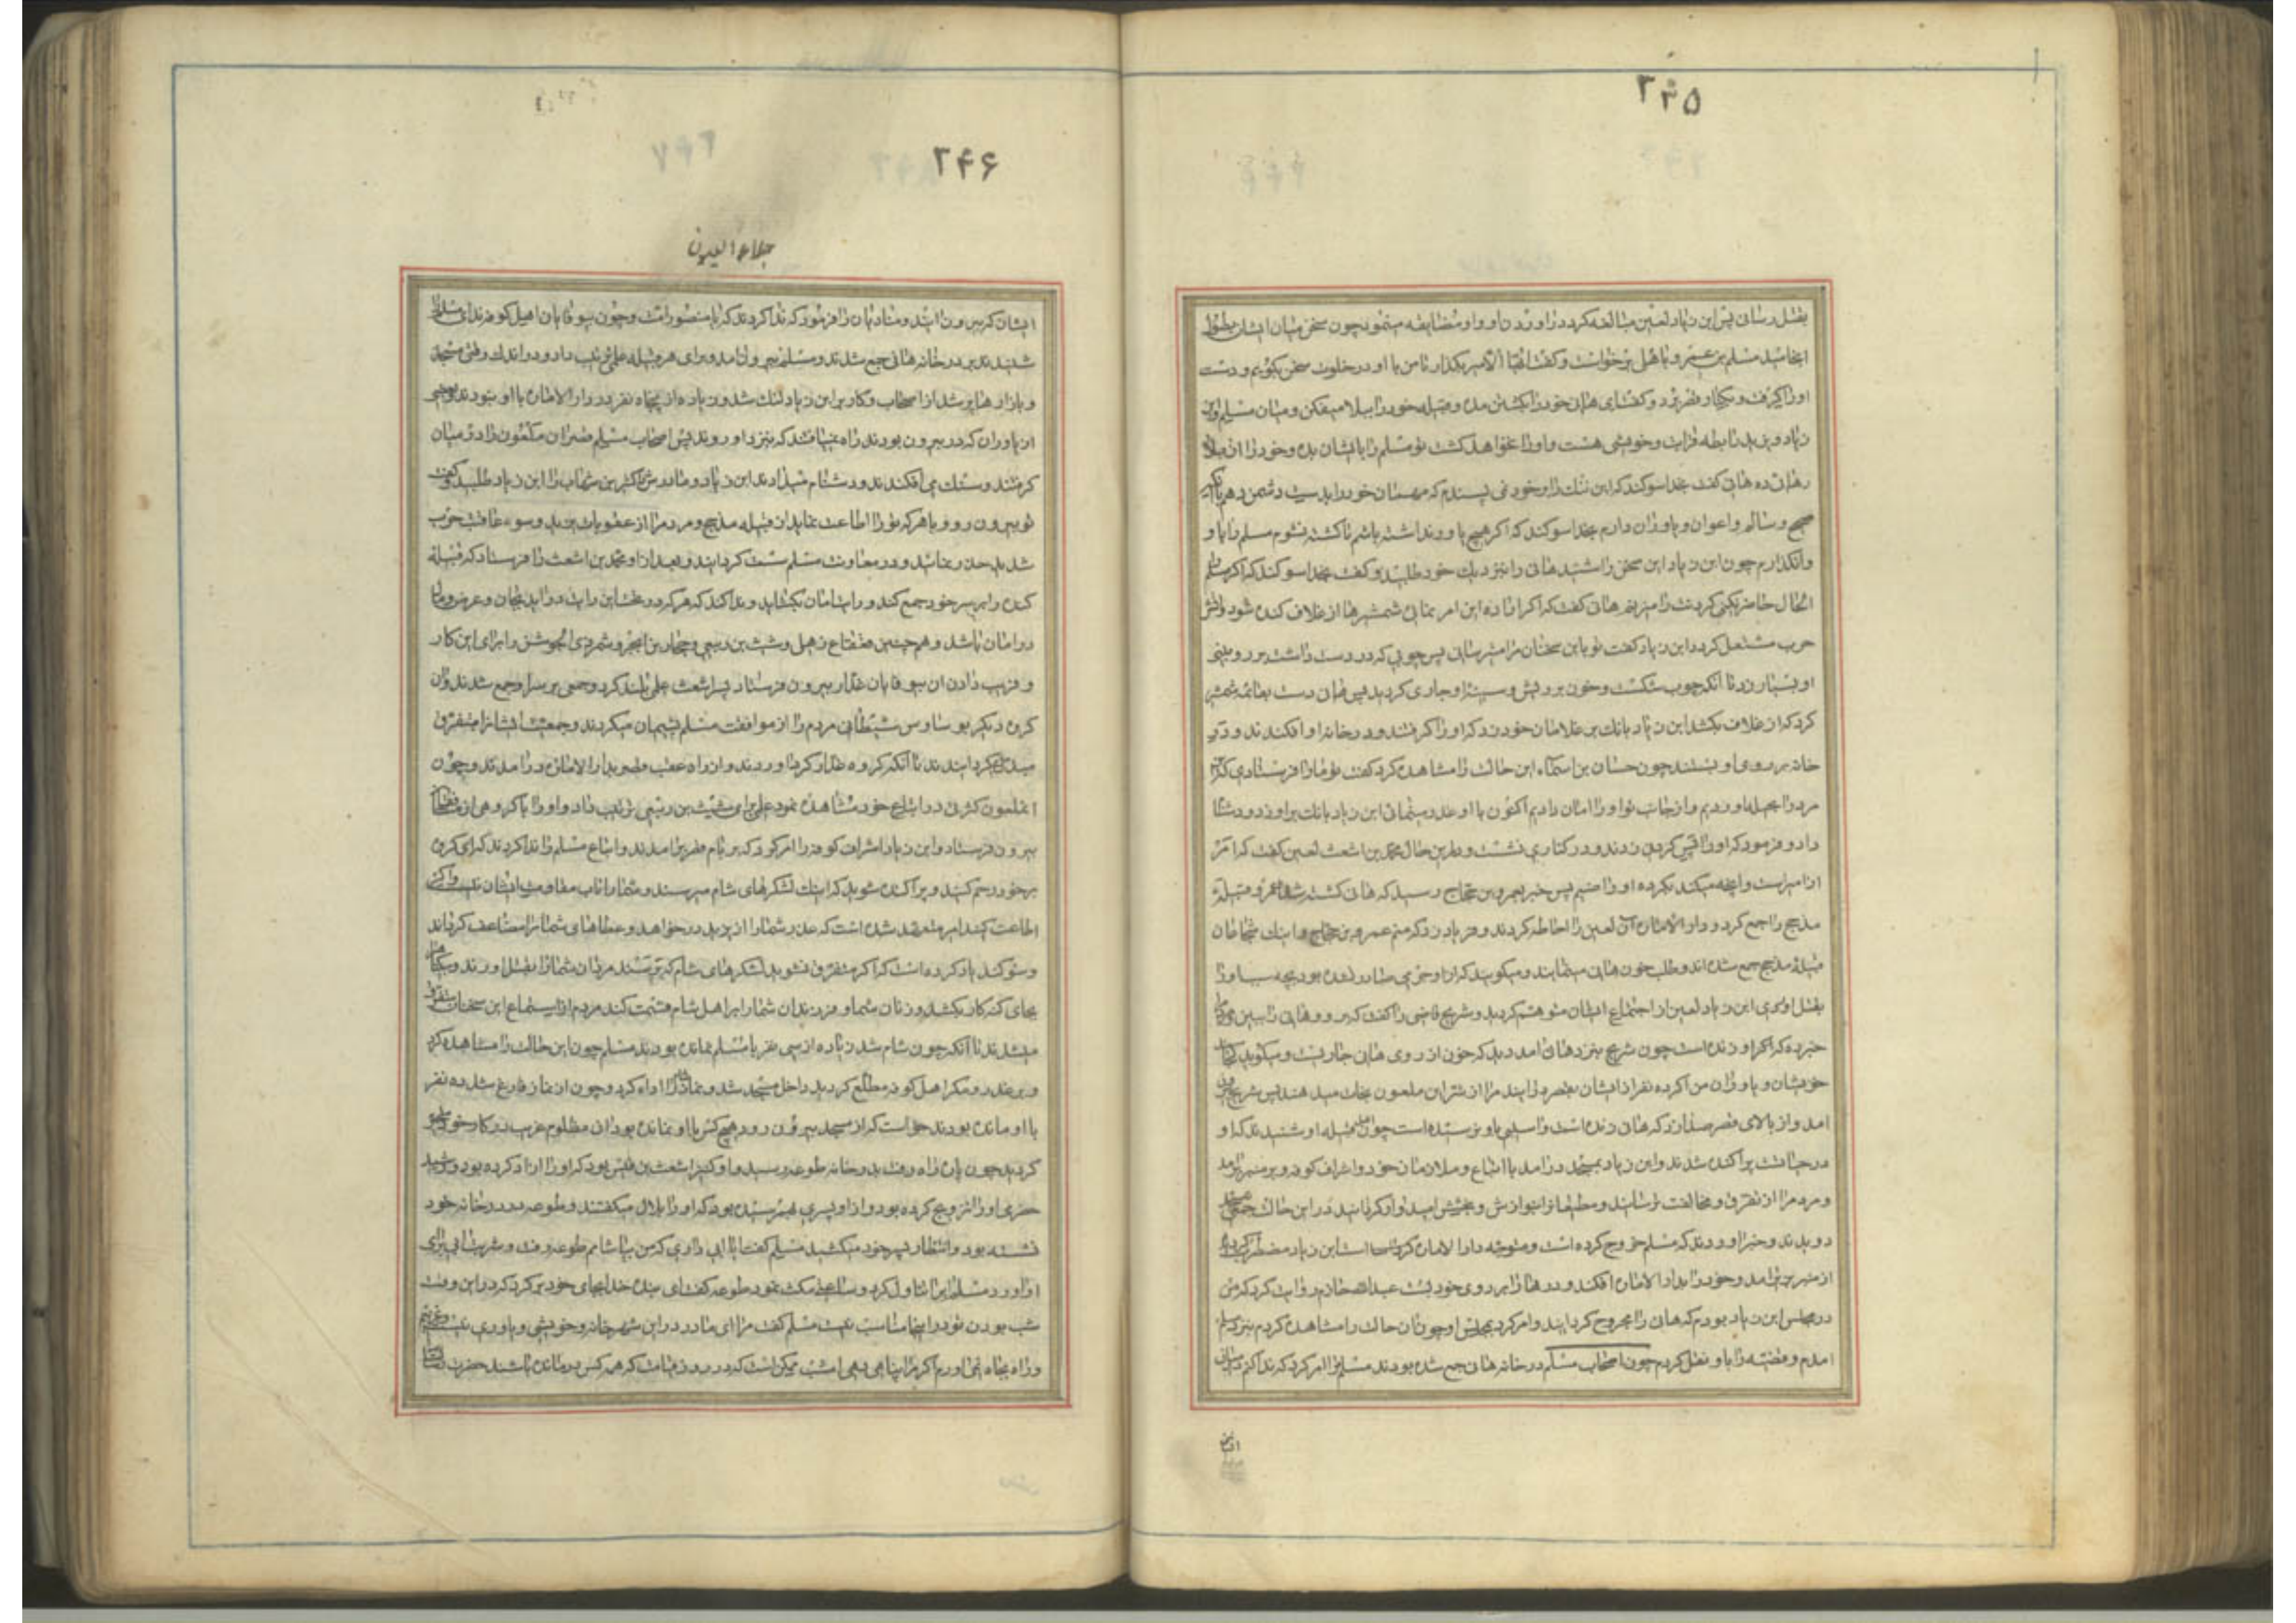 ۲۳۵
بقتل رسانی پس ابن زیاد لعین مبالغه کرد در اوردن او و او مضایقه مینمود چون سخن میان ایشان بطول
انجامید مسلم بن عمرو باهلی برخواست و گفت ایها الامیر بگذار تا من با او در خلوت سخن بگویم و دست
او را گرفت و بکنار قصر برد و گفت ای هانی خود را بکشتن مده و قبیله خود را ببلا میفکن و میان مسلم و ابن
زیاد و یزید رابطه قرابت و خویشی هست و او را نخواهد کشت تو مسلم را بایشان بده و خود را از بلا
رهائی ده هانی گفت بخدا سوکند که این ننک را بر خود نمی پسندم که مهمان خود را بدست دشمن دهم با آنکه
صحیح و سالم و اعوان و یاوران دارم بخدا سوکند که اکر هیچ یاور نداشته باشم تا کشته نشوم مسلم را باو
وانگذارم چون ابن زیاد این سخن را شنید هانی را بنزدیك خود طلبید و گفت بخدا سوکند که اکر مسلم را
الحال حاضر نکنی کردنت را میزنم هانی گفت که اکر اراده این امر نمائی شمشیرها از غلاف کنده شود و اتش
حرب مشتعل کردد ابن زیاد گفت تو باین سخنان مرا میترسانی پس چوبی که در دست داشت بر رو و بینی
او بسیار زد تا انکه چوب شکست و خون بر ریش و سینه او جاری کردید پس هانی دست بقائمه شمشیر
کرد که از غلاف بکشد ابن زیاد بانك بر غلامان خود زد که او را گرفتند و در خانه او افکندند و در
خانه بر روی او بستند چون حسان بن اسماء این حالت را مشاهده کرد گفت تو ما را فرستادی که این
مرد را بحیله اوردیم و از جانب تو او را امان دادیم اکنون با او غدر مینمائی ابن زیاد بانك بر او زد و دشنام
داد و فرمود که او را پس کردنی زدند و در کناری نشست و در این حال محمد بن اشعث لعین گفت که امر
از امیر است و انچه میکند بکرده او راضیم پس خبر بعمرو بن حجاج رسید که هانی کشته شد عمرو قبیله
مذحج را جمع کرد و دار الاماره آن لعین را احاطه کردند و فریاد زد که منم عمرو بن حجاج و اینك شجاعان
قبیله مذحج جمع شده اند و طلب خون هانی مینمایند و میکویند که از او جرمی صادر نشده بود بچه سبب او را
بقتل اوردی ابن زیاد لعین از اجتماع ایشان متوهم کردید و شریح قاضی را گفت که برو و هانی را ببین و
خبر ده که اکر او زنده است چون شریح بنزد هانی امد دید که خون از روی هانی جاریست و میکوید
خویشان و یاوران من اکر ده نفر از ایشان بقصر درایند مرا از شر این ملعون نجات میدهند پس شریح بیرون
امد و از بالای قصر صدا زد که هانی زنده است و اسیبی باو نرسیده است چون قبیله او شنیدند که او
در حیاتست پراکنده شدند و ابن زیاد بمسجد درامد با اتباع و ملازمان خود و اشراف کوفه و بر منبر برامد
و مردم را از تفرق و مخالفت ترسانید و مطیعانرا بنوازش و بخشش امیدوار کردانید در این حالت جمعی بمسجد
دویدند و خبر اوردند که مسلم خروج کرده است و متوجه دار الاماره کردیده است ابن زیاد مضطرب کردید
از منبر بزیر امد و خود را بدار الاماره افکند و درها را بر روی خود بست عبدالله خادم روایت کرد که من
در مجلس ابن زیاد بودم که هانی را مجروح کردانید و امر کرد بحبس او چون ان حالت را مشاهده کردم بنزد مسلم
امدم و قضیه را باو نقل کردم چون اصحاب مسلم در خانه هانی جمع شده بودند مسلم مرا امر کرد که ندا کنم در میان
ایشان
۲۴۶
جلاء العیون
ایشان که بیرون ایند و منادیان را فرمود که ندا کردند که یا منصور امت و چون بیوفایان اهل کوفه ندای مسلم را
شنیدند بر در خانه هانی جمع شدند و مسلم بیرون امد و برای هر قبیله علمی ترتیب داد و در اندك وقتی مسجد
و بازارها پر شد از اصحاب و کار بر ابن زیاد تنك شد و زیاده از پنجاه نفر در دار الاماره با او نبودند و بعضی
از یاوران که در بیرون بودند راه نمییافتند که بنزد او روند پس اصحاب مسلم قصر ان ملعون را در میان
گرفتند و سنك می افکندند و دشنام میدادند ابن زیاد و مادرش کثیر بن شهاب را ابن زیاد طلبید و گفت
تو بیرون رو و با هر که تو را اطاعت نماید از قبیله مذحج و مردم را از عقوبات یزید و سوء عاقبت حرب
شدید حذر بنمائید و در معاونت مسلم سست کردانند و بعد از او محمد بن اشعث را فرستاد که قبیله
کنده را بر سر خود جمع کند و رایت امان بکشاید و ندا کند که هر که در تحت این رایت دراید بجان و عرض و مال
در امان باشد و همچنین قعقاع ذهلی و شبث بن ربعی و حجار بن ابجر و شمر ذی الجوشن را برای این کار
و فریب دادن ان بیوفایان غدار بیرون فرستاد پسر اشعث علمی بلند کرد و جمعی بر سر او جمع شدند و ان
کروه دیکر بوساوس شیطانی مردم را از موافقت مسلم پشیمان میکردند و جمعیت ایشانرا متفرق
میکردانیدند تا آنکه کروه غدار کرد اوردند و از راه عقب قصر بدار الاماره درامدند و چون
ان ملعون کثرتی در اتباع خود مشاهده نمود علمی برای شبث بن ربعی ترتیب داد و او را با کروهی از منافقان
بیرون فرستاد و ابن زیاد اشراف کوفه را امر کرد که بر بام قصر برامدند و اتباع مسلم را ندا کردند که ای کروه
بر خود رحم کنید و پراکنده شوید که اینك لشکرهای شام میرسند و شما را تاب مقاومت ایشان نیست و اکر
اطاعت کنید امیر متعهد شده است که عذر شما را از یزید درخواهد و عطاهای شما را مضاعف کرداند
و سوکند یاد کرده است که اکر متفرق نشوید لشکرهای شام که برسند مردان شما را بقتل اورند و بیکناه را
بجای کنه کار بکشند و زنان شما و فرزندان شما را بر اهل شام قسمت کنند مردم از استماع این سخنان متفرق
میشدند تا آنکه چون شام شد زیاده از سی نفر با مسلم نمانده بودند مسلم چون این حالت را مشاهده کرد
و بر غدر و مکر اهل کوفه مطلع کردید داخل مسجد شد و نماز شام را اداء کرد و چون از نماز فارغ شد ده نفر
با او مانده بودند خواست که از مسجد بیرون رود هیچ کس با او نمانده بود ان مظلوم غریب در کار خود متحیر
کردید چون پاره راه رفت بدر خانه طوعه رسید و او کنیز اشعث بن قیس بود که او را ازاد کرده بود و اسید
حضرمی او را تزویج کرده بود و از او پسری بهمرسیده بود که او را بلال میکفتند و طوعه بر در خانه خود
نشسته بود و انتظار پسر خود میکشید مسلم گفت ایا ابی داری که من بیاشامم طوعه رفت و شربت ابی برای
او اورد مسلم ابرا تناول کرد و ساعتی مکث نمود طوعه گفت ای بنده خدا بجای خود برکرد که در این وقت
شب بودن تو در اینجا مناسب نیست مسلم گفت مرا ای مادر در این شهر خانه و خویشی و یاوری نیست
و راه بجاه نمی اورم اکر مرا پناهی دهی امشب ممکن است که در روز قیامت که همه کس درمانده باشند حضرت